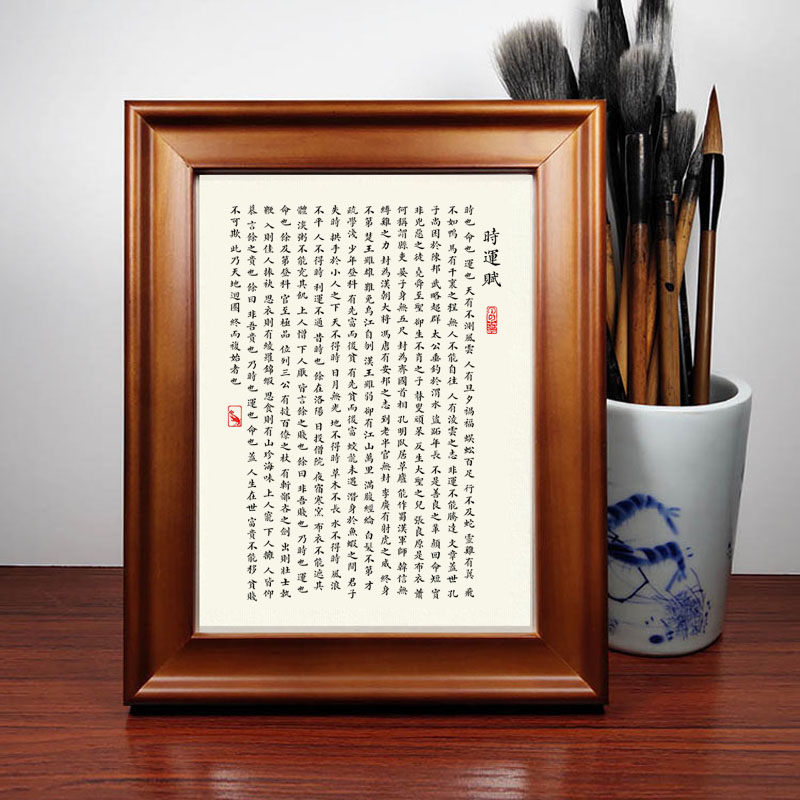 時運賦
時也 命也 運也 天有不測風雲 人有旦夕禍福 蜈蚣百足 行不及蛇 靈雞有翼 飛
不如鴨 馬有千裏之程 無人不能自往 人有淩雲之志 非運不能騰達 文章蓋世 孔
子尚困於陳邦 武略超群 太公垂釣於渭水 盜跖年長 不是善良之輩 顏回命短 實
非兇惡之徒 堯舜至聖 卻生不肖之子 瞽叟頑呆 反生大聖之兒 張良原是布衣 蕭
何稱謂縣吏 晏子身無五尺 封為齊國首相 孔明臥居草廬 能作蜀漢軍師 韓信無
縛雞之力 封為漢朝大將 馮唐有安邦之志 到老半官無封 李廣有射虎之威 終身
不第 楚王雖雄 難免烏江自刎 漢王雖弱 卻有江山萬里 滿腹經綸 白髮不第 才
疏學淺 少年登科 有先富而後貧 有先貧而後富 蛟龍未遇 潛身於魚蝦之間 君子
失時 拱手於小人之下 天不得時 日月無光 地不得時 草木不長 水不得時 風浪
不平 人不得時 利運不通 昔時也 餘在洛陽 日投僧院 夜宿寒窯 布衣不能遮其
體 淡粥不能充其飢 上人憎 下人厭 皆言餘之賤也 餘曰 非吾賤也 乃時也 運也
命也 餘及第登科 官至極品 位列三公 有撻百僚之杖 有斬鄙吝之劍 出則壯士執
鞭 入則佳人捧袂 思衣則有綾羅錦緞 思食則有山珍海味 上人寵 下人擁 人皆仰
慕 言餘之貴也 餘曰 非吾貴也 乃時也 運也 命也 蓋人生在世 富貴不能移 貧賤
不可欺 此乃天地迴圈 終而複始者也